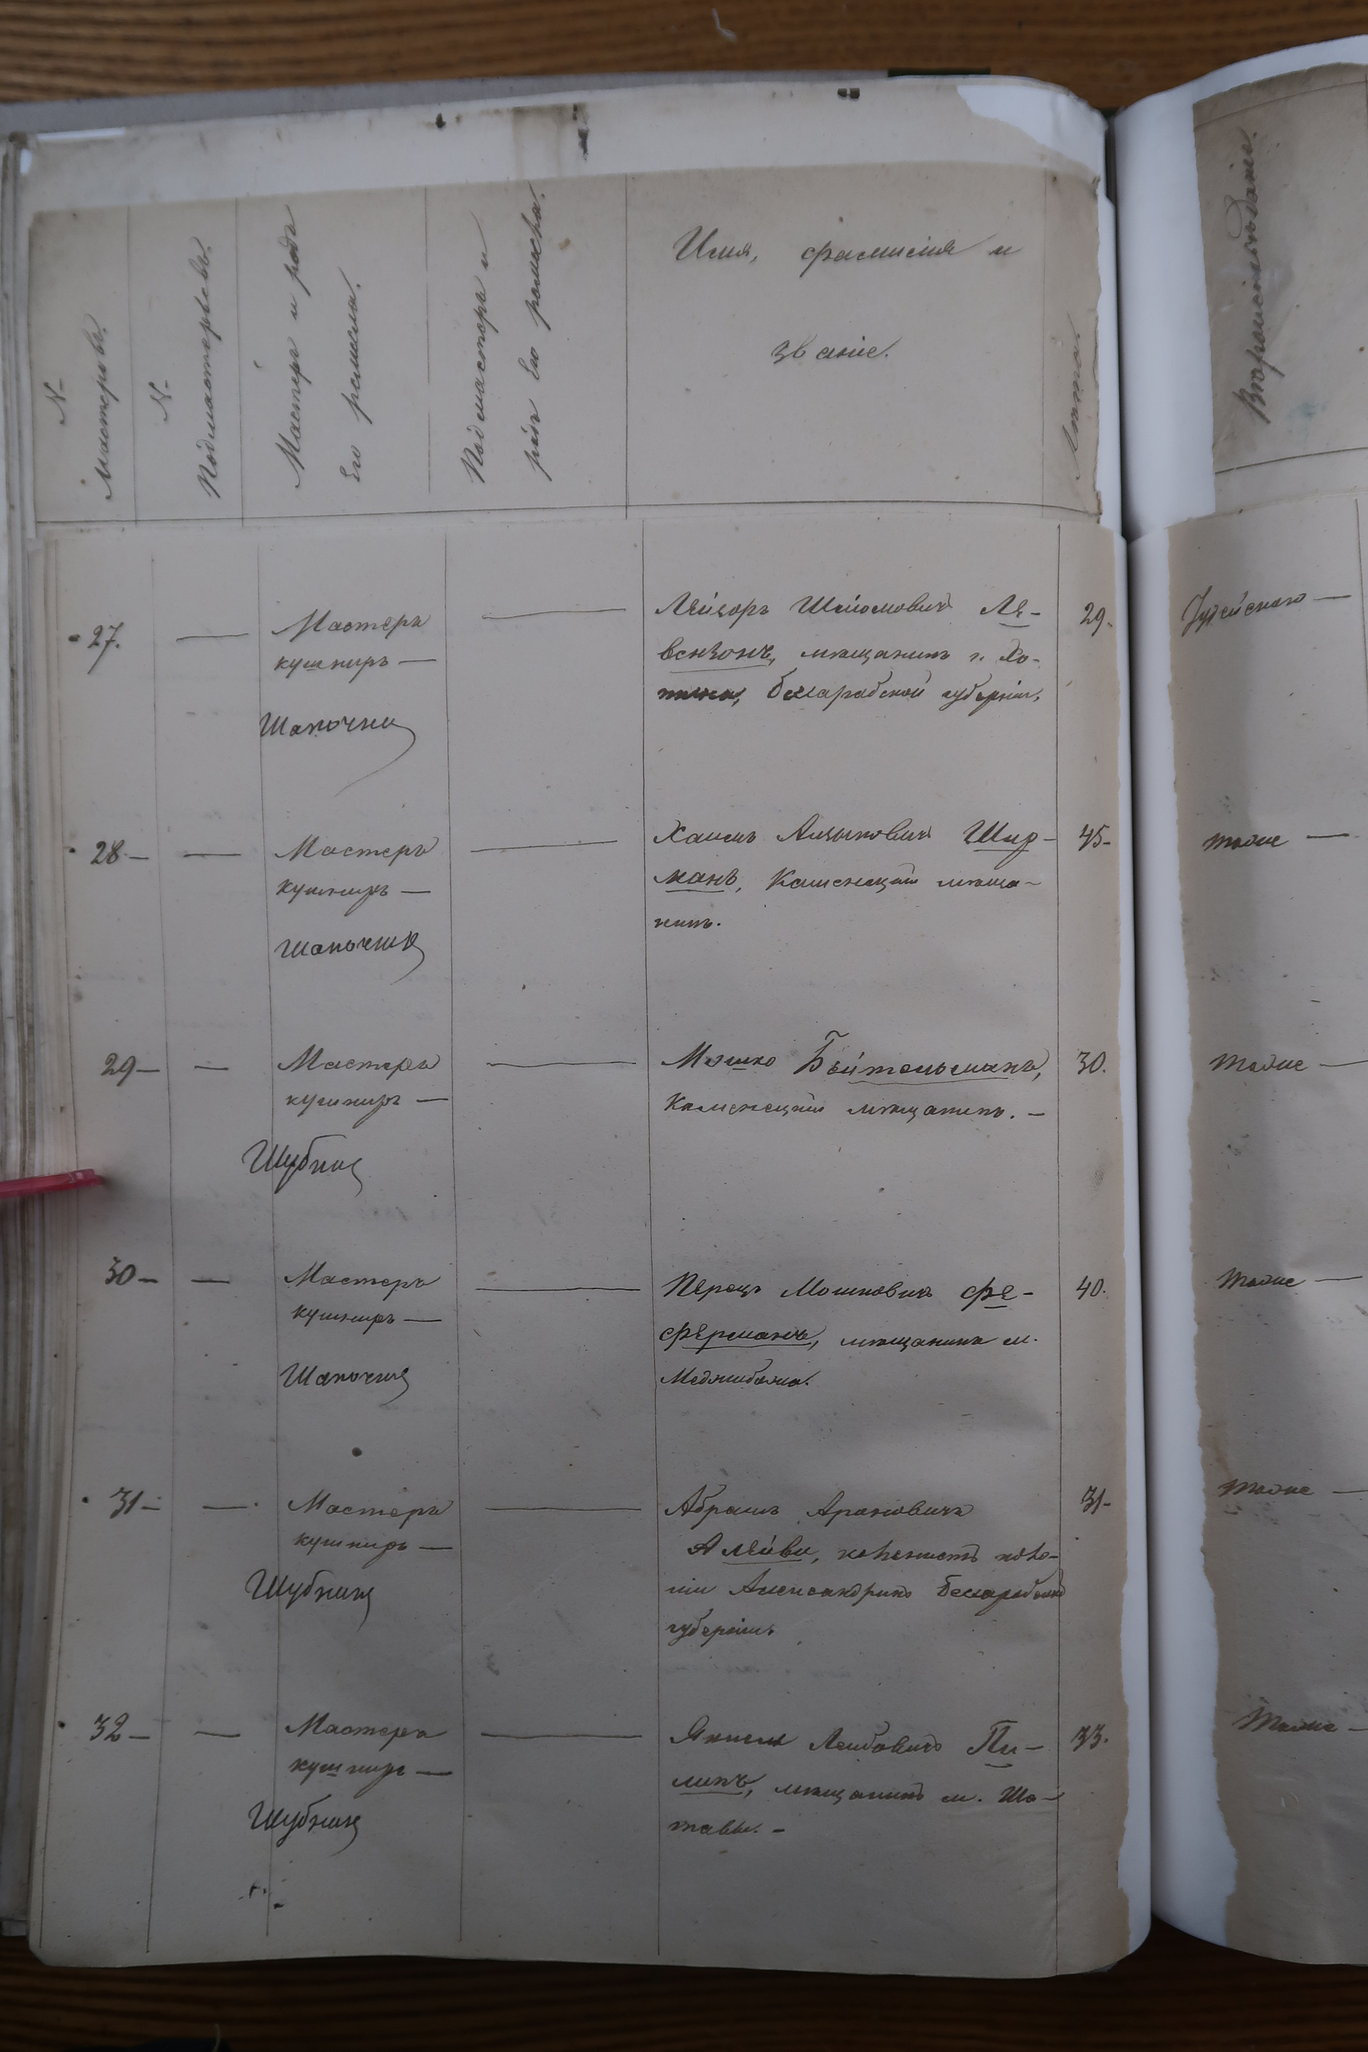 № Мастеровъ.
№ Подмастерьевъ.
Мастеръ и родъ
Его ремесла.
Подмастеръ и
родъ его ремесла.
Имя, фамилія и
званіе.
Лѣта.
Вѣроисповѣданіе.
27. — Мастеръ
кушниръ —
Шапочни
Лейзоръ Шлiомовичъ Ле-
вензонъ, мѣщанинъ г. Хо-
тина, Бессарабской губерніи.
29.
Іудейскаго —
28 — — Мастеръ
кушниръ —
Шапочник
Хаимъ Ицковичъ Шир-
манъ, Каменецкій мѣща-
нинъ.
45 —
тоже —
29 — — Мастеръ
кушниръ —
Шубник
Мошко Бейтельманъ,
Каменецкій мѣщанинъ. —
30.
тоже —
30 — — Мастеръ
кушниръ —
Шапочник
Перецъ Мошковичъ Фе-
ферманъ, мѣщанинъ м.
Меджибожа.
40.
тоже —
31 — — Мастеръ
кушниръ —
Шубник
Абрамъ Ароновичъ
Алейви, колонистъ коло-
ніи Александрино Бессарабской
губерніи.
31 —
тоже —
32 — — Мастеръ
кушниръ —
Шубник
Янкель Лейбовичъ Пи-
линъ, мѣщанинъ м. Ша-
тавы. —
33.
тоже —